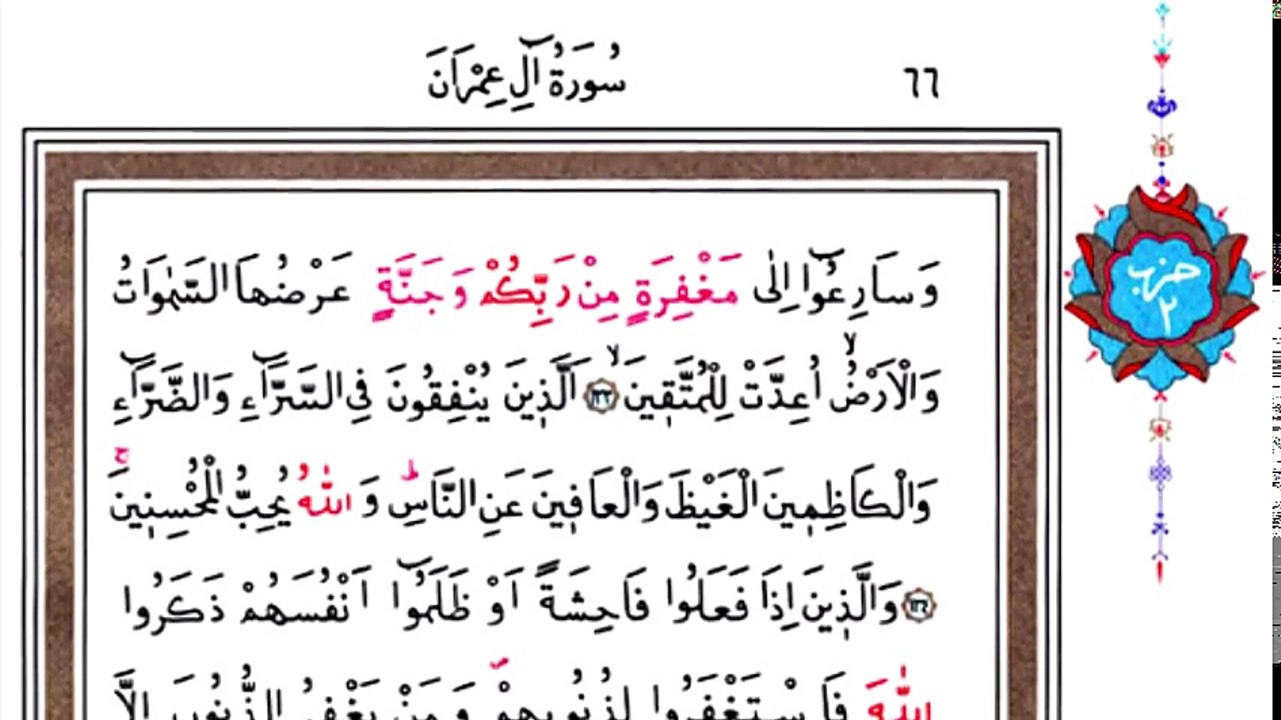 سُورَةُ اٰلِ عِمْرَانَ
٦٦
وَسَارِعُٓوا اِلٰى مَغْفِرَةٍ مِنْ رَبِّكُمْ وَجَنَّةٍ عَرْضُهَا السَّمٰوَاتُ
وَالْاَرْضُۙ اُعِدَّتْ لِلْمُتَّق۪ينَۙ ﴿١٣٣﴾ اَلَّذ۪ينَ يُنْفِقُونَ فِي السَّرَّٓاءِ وَالضَّرَّٓاءِ
وَالْكَاظِم۪ينَ الْغَيْظَ وَالْعَاف۪ينَ عَنِ النَّاسِۜ وَاللّٰهُ يُحِبُّ الْمُحْسِن۪ينَۚ
﴿١٣٤﴾ وَالَّذ۪ينَ اِذَا فَعَلُوا فَاحِشَةً اَوْ ظَلَمُٓوا اَنْفُسَهُمْ ذَكَرُوا
اللّٰهَ فَاسْتَغْفَرُوا لِذُنُوبِهِمْ وَمَنْ يَغْفِرُ الذُّنُوبَ اِلَّا
حزب
٢